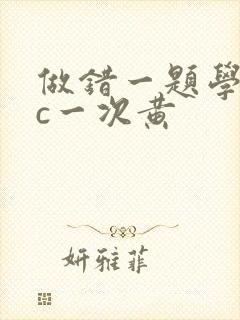 做錯一題學
c一次黄
妍雅菲